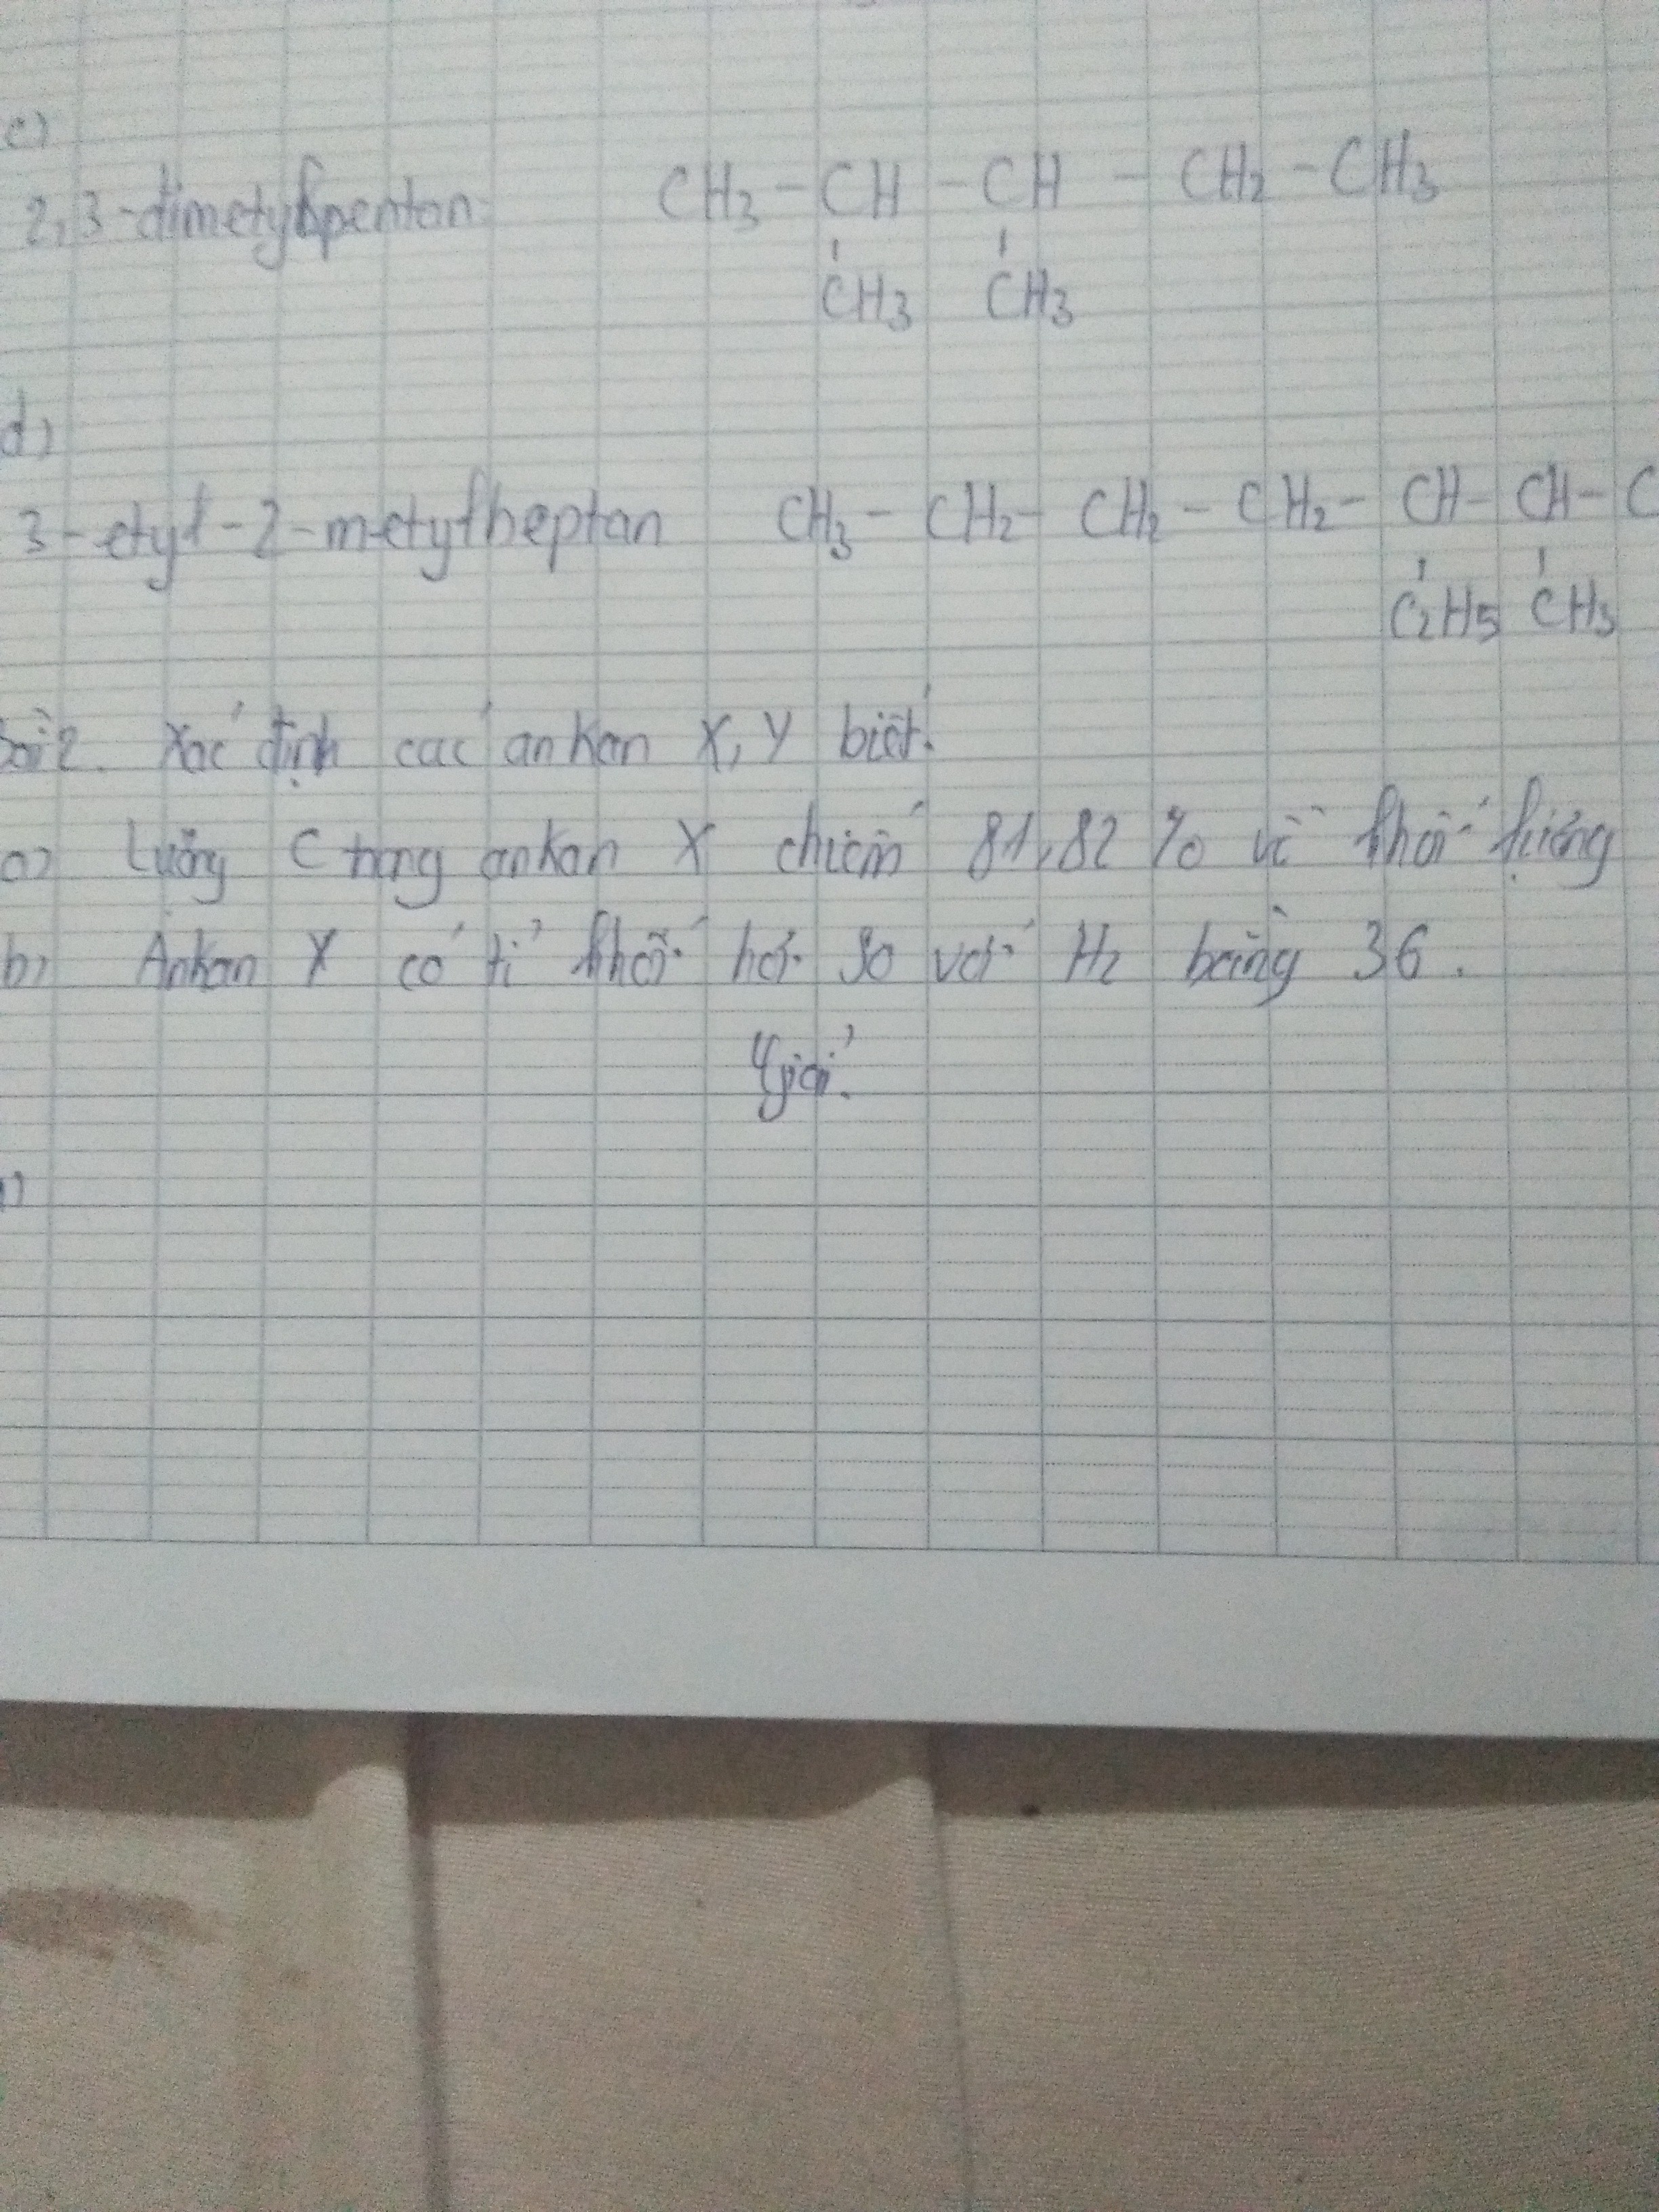 c)
2,3-đimetylpentan CH3 - CH - CH - CH2 - CH3
CH3 CH3
d)
3-etyl-2-metylheptan CH3 - CH2 - CH2 - CH2 - CH - CH - C
C2H5 CH3
bài 2. Xác định các ankan X, Y biết:
a) Lượng C trong ankan X chiếm 81,82 % về khối lượng
b) Ankan Y có tỉ khối hơi so với H2 bằng 36.
giải: